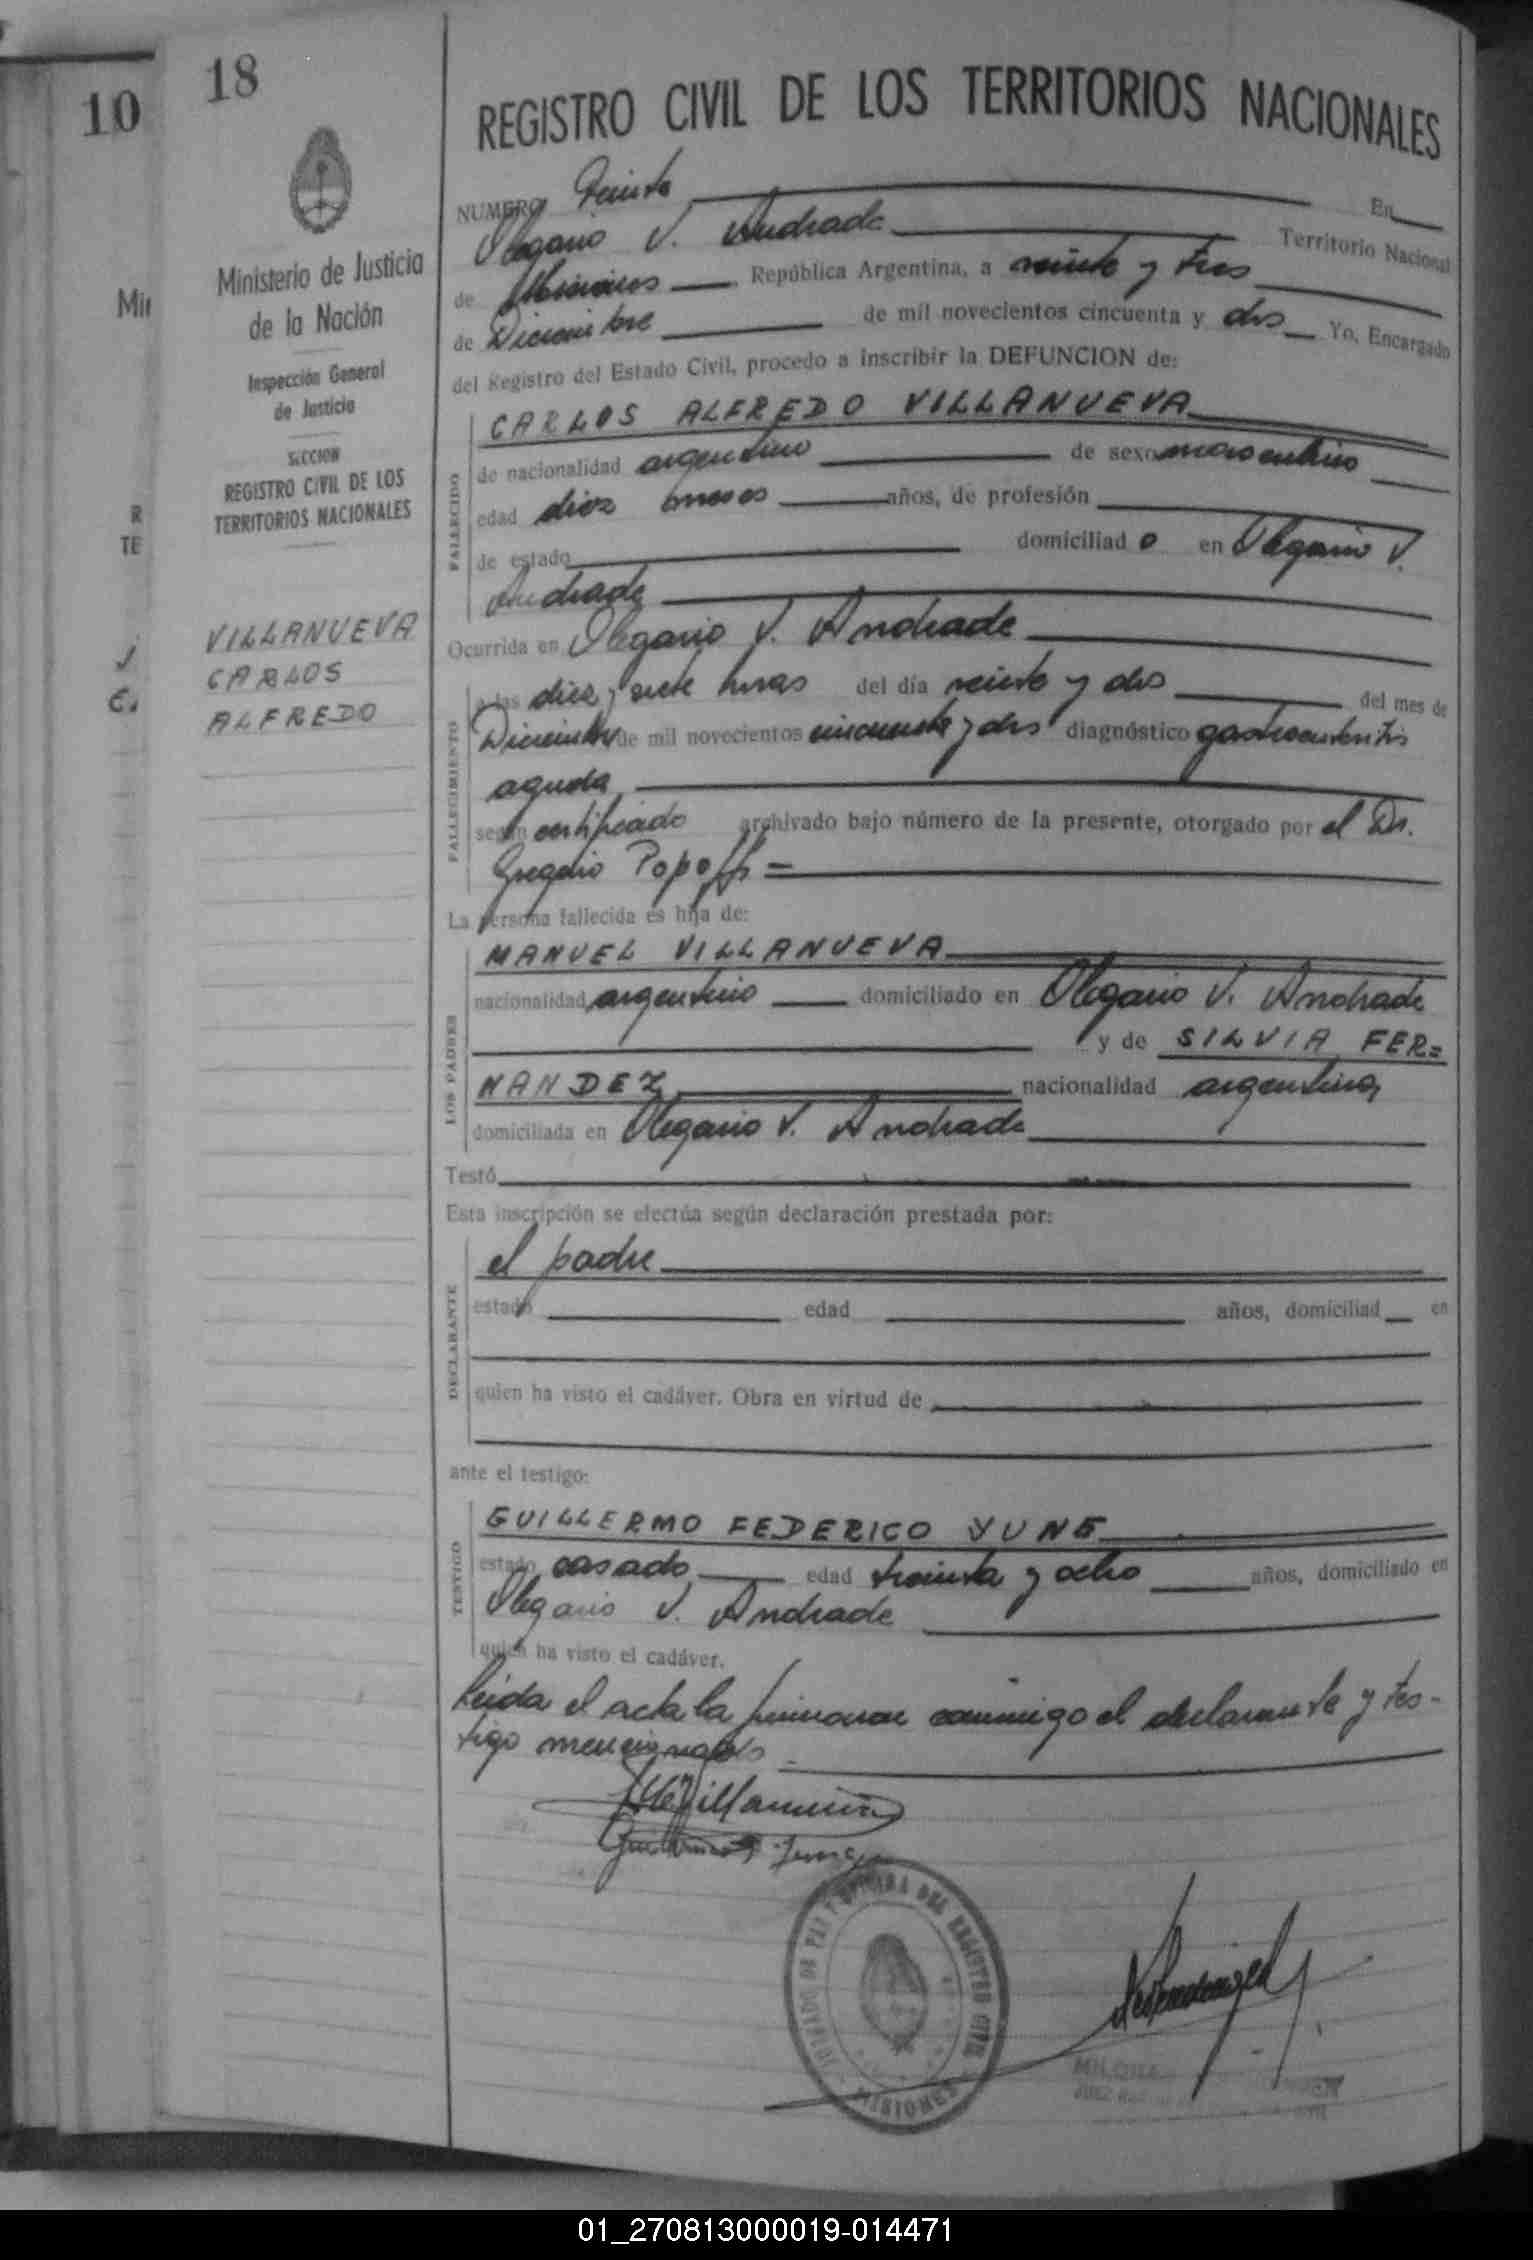 10
18
Mi
R
TE
Ministerio de Justicia
de la Nación
Inspección General
de Justicia
SECCION
REGISTRO CIVIL DE LOS
TERRITORIOS NACIONALES
VILLANUEVA
CARLOS
ALFREDO
REGISTRO CIVIL DE LOS TERRITORIOS NACIONALES
NUMERO Treinta En
Olegario V. Andrade Territorio Nacional
de Misiones República Argentina, a veinte y tres
de Diciembre de mil novecientos cincuenta y dos Yo, Encargado
del Registro del Estado Civil, procedo a inscribir la DEFUNCION de:
FALLECIDO
CARLOS ALFREDO VILLANUEVA
de nacionalidad argentino de sexo masculino
edad diez meses años, de profesión
de estado domiciliad o en Olegario V.
Andrade
Ocurrida en Olegario V. Andrade
FALLECIMIENTO
a las diez y siete horas del día veinte y dos del mes de
Diciembre de mil novecientos cincuenta y dos diagnóstico gastroenteritis
aguda
según certificado archivado bajo número de la presente, otorgado por el Dr.
Gregorio Popoff =
La persona fallecida es hija de:
LOS PADRES
MANUEL VILLANUEVA
nacionalidad argentino domiciliado en Olegario V. Andrade
y de SILVIA FER=
NANDEZ nacionalidad argentina
domiciliada en Olegario V. Andrade
Testó
Esta inscripción se efectúa según declaración prestada por:
DECLARANTE
el padre
estado edad años, domiciliad en
quien ha visto el cadáver. Obra en virtud de
ante el testigo:
TESTIGO
GUILLERMO FEDERICO YUNG
estado casado edad treinta y ocho años, domiciliado en
Olegario V. Andrade
quien ha visto el cadáver.
Leida el acta la firmaron conmigo el declarante y tes-
tigo mencionados
JUZGADO DE PAZ Y OFICINA DEL REGISTRO CIVIL
MISIONES
01_270813000019-014471